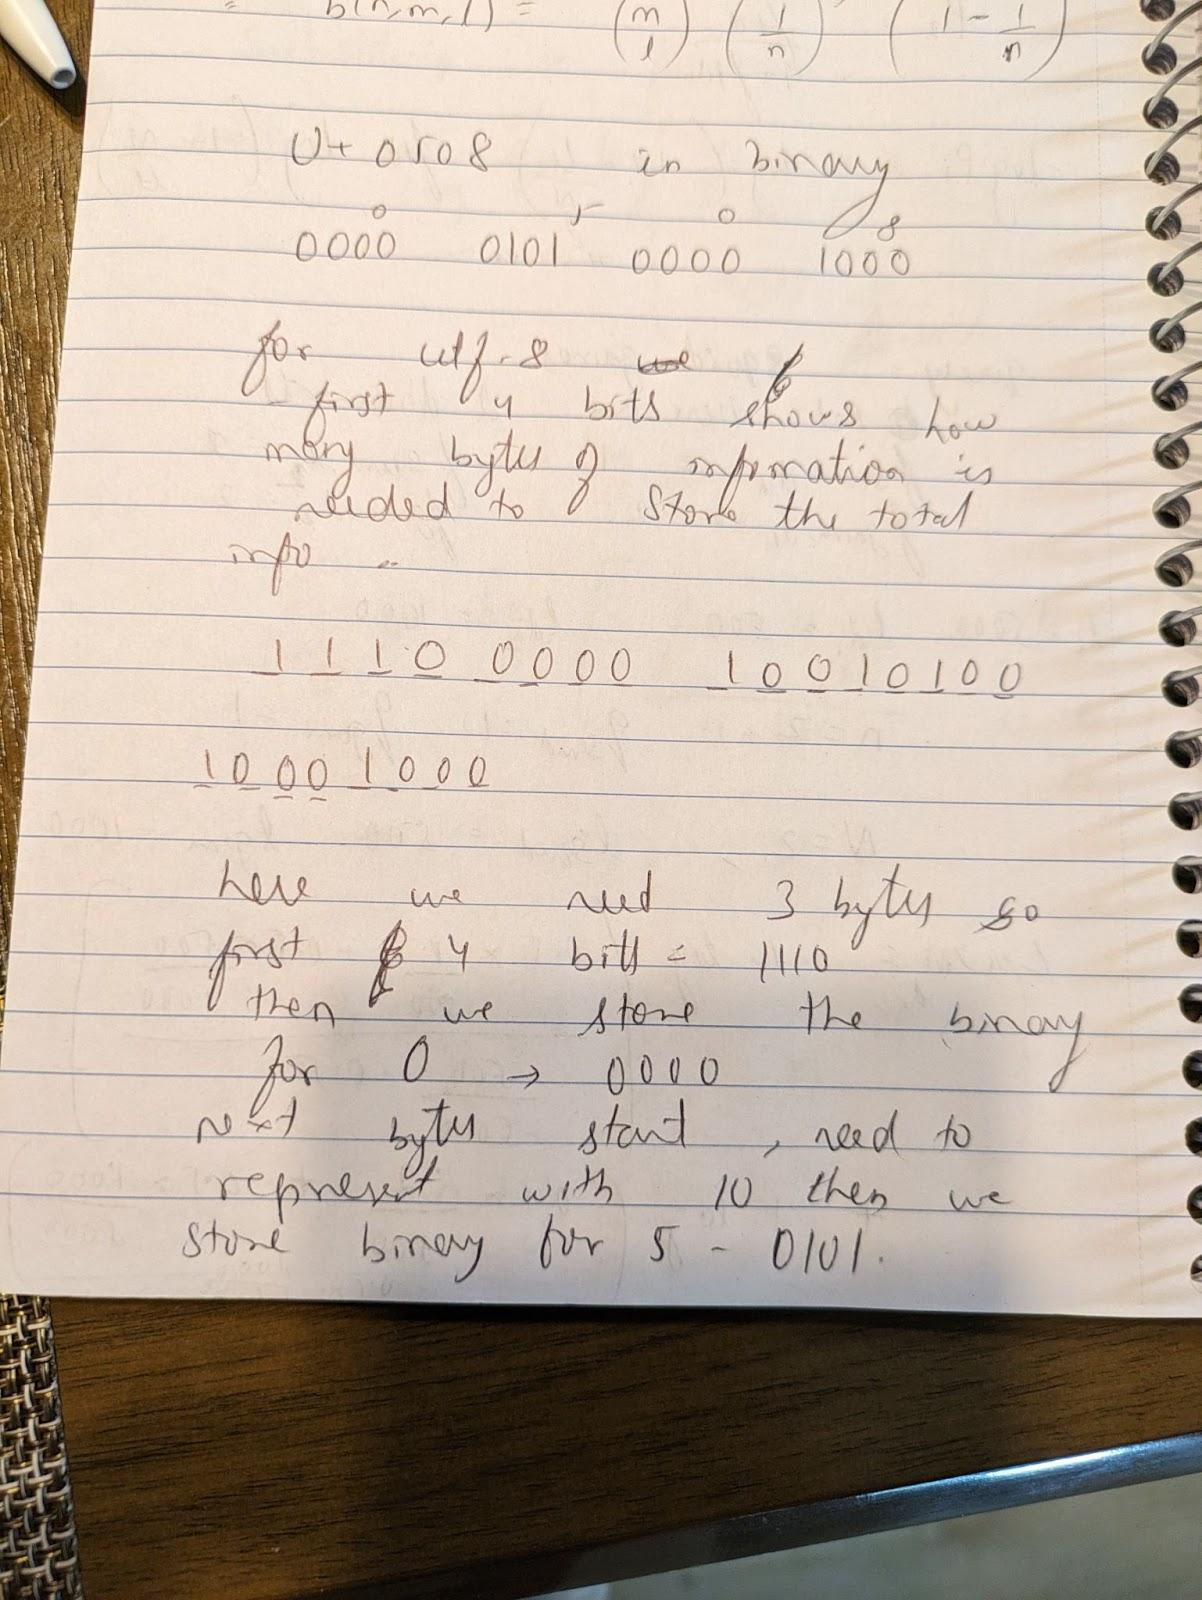 = b(n, m, l) = (m l) (1/n) (1 - 1/n)
U+0508 in binary
0 5 0 8
0000 0101 0000 1000
for utf-8
first 4 bits shows how
many bytes of information is
needed to store the total
info
1110 0000 10010100
10001000
here we need 3 bytes so
first 4 bits = 1110
then we store the binary
for 0 → 0000
next bytes start, need to
represent with 10 then we
store binary for 5 - 0101.